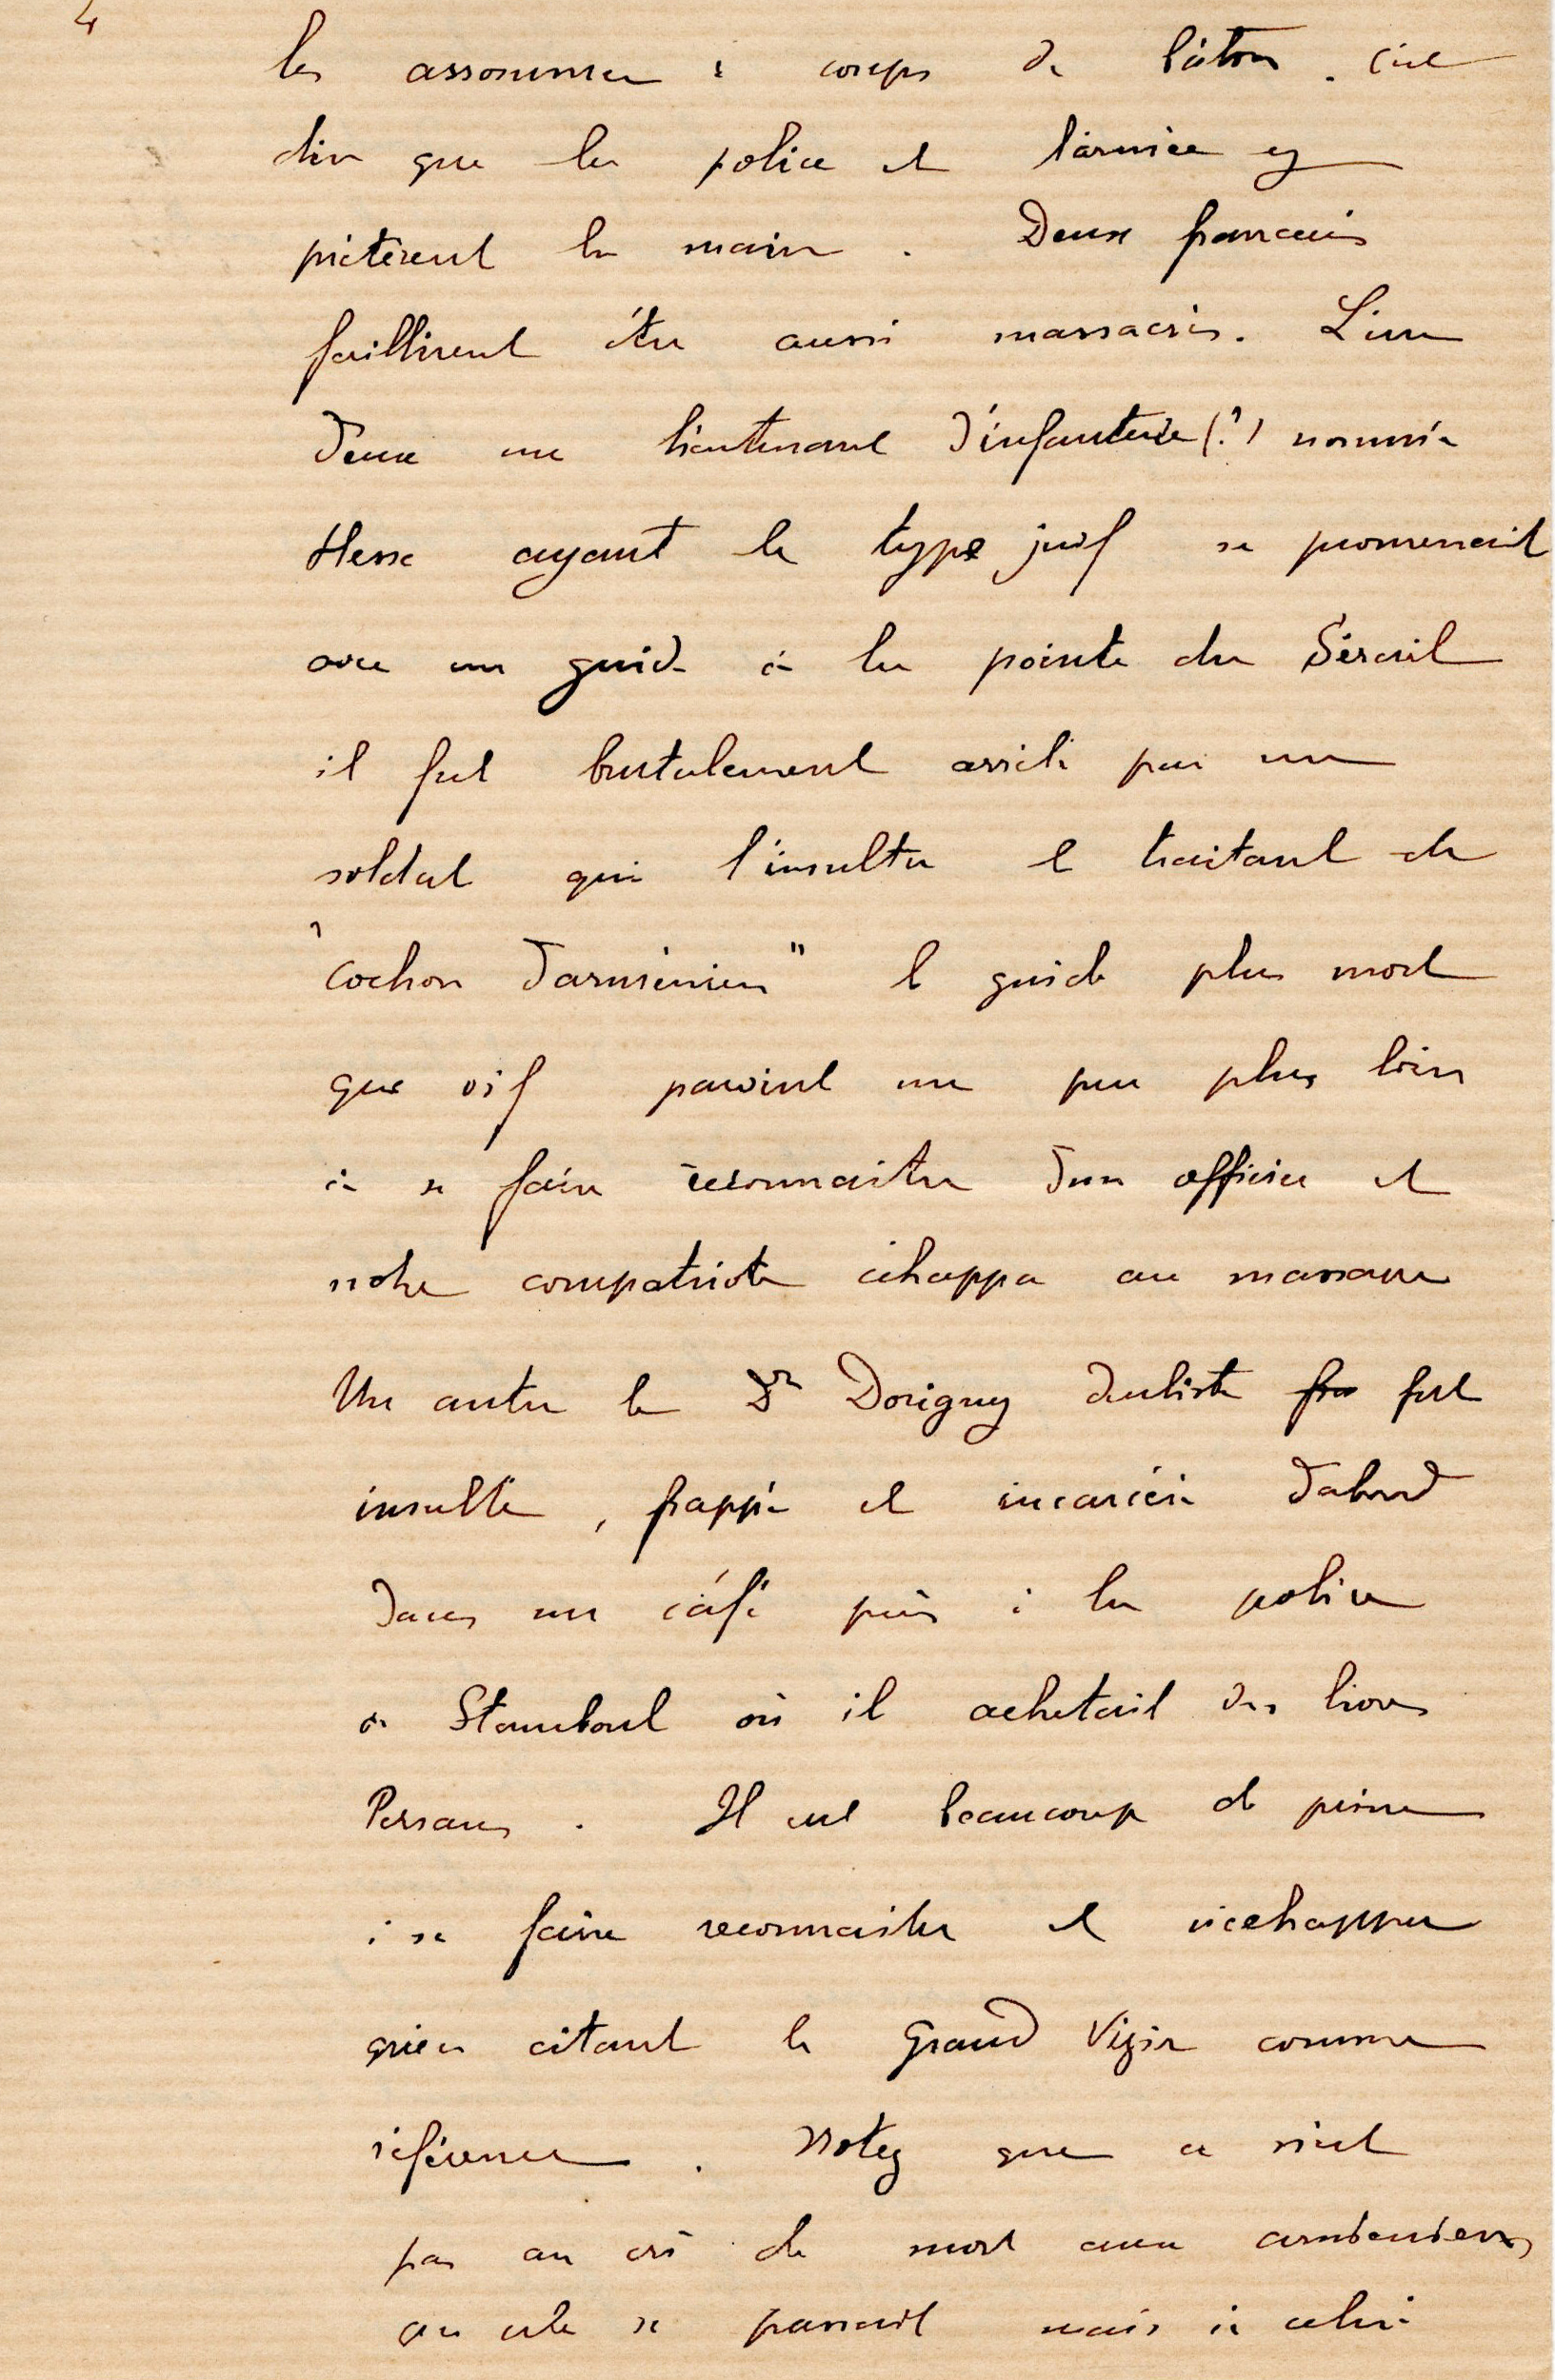 4
les assommer à coups de bâton. C'est
dire que la police et l'armée y
prêtèrent la main. Deux français
faillirent être aussi massacrés. L'un
d'eux un lieutenant d'infanterie (?) nommé
Hesse ayant le type juif se promenait
avec un guide à la pointe du Sérail
il fut brutalement arrêté par un
soldat qui l'insulta le traitant de
"cochon d'arménien" le guide plus mort
que vif parvint un peu plus loin
à se faire reconnaître d'un officier et
notre compatriote échappa au massacre
Un autre le Dr Dorigny dentiste fra fut
insulté, frappé et incarcéré d'abord
dans un café puis à la police
à Stamboul où il achetait des livres
Persans. Il eut beaucoup de peine
à se faire reconnaître et n'échappa
qu'en citant le Grand Vizir comme
référence. Notez que ce n'est
pas au cri de mort aux arméniens
que cela se passait mais à celui